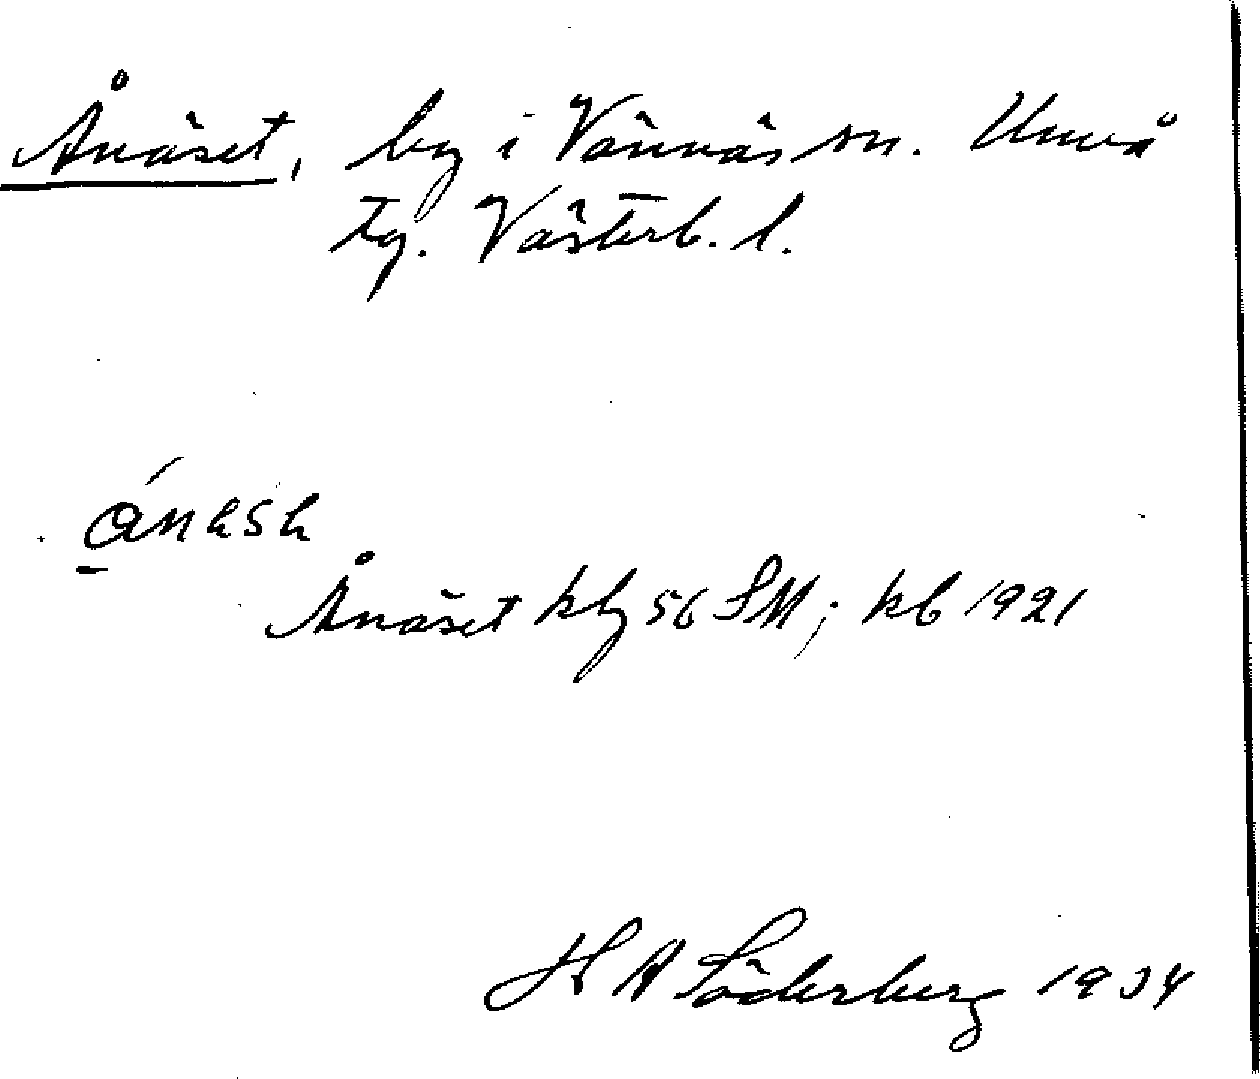 Ånäset, by i Vännäs sn. Umeå
tg. Västerb. l.
Ånäset kbg 56 SM; kb 1921
H A Söderberg 1934